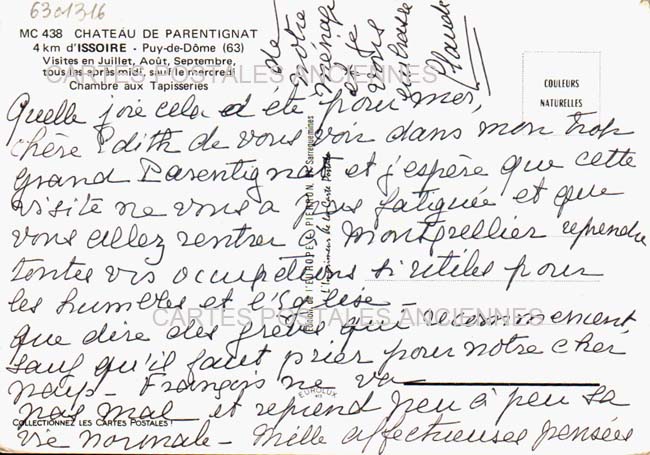 6301316
MC 438 CHATEAU DE PARENTIGNAT
4 km d'ISSOIRE - Puy-de-Dôme (63)
Visites en Juillet, Août, Septembre,
tous les après midi, sauf le mercredi
Chambre aux Tapisseries
COULEURS
NATURELLES
CARTES POSTALES ANCIENNES
Quelle joie cela a été pour moi,
chère Edith de vous voir dans mon trop
grand Parentignat et j'espère que cette
visite ne vous a pas fatiguée et que
vous allez rentrer à Montpellier reprendre
toutes vos occupations si utiles pour
les humbles et l'Eglise -
que dire des grèves qui recommencent
sauf qu'il faut prier pour notre cher
pays - François ne va
pas mal et reprend peu à peu sa
vie normale - Mille affectueuses pensées
de
notre
ménage
et je
vous
embrasse
Claude
Edition de l'EUROPE PIERRON Sarreguemines
CARTES POSTALES ANCIENNES
EUROLUX
COLLECTIONNEZ LES CARTES POSTALES !